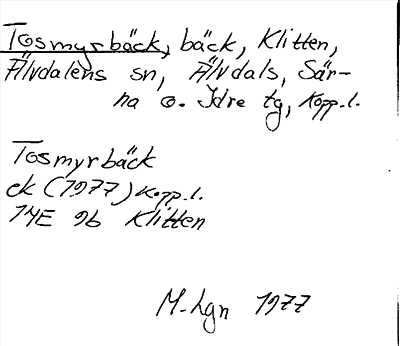 Tosmyrbäck, bäck, Klitten,
Älvdalens sn, Älvdals, Sär-
na o. Idre tg, Kopp.l.
Tosmyrbäck
ek (1977) Kopp.l.
14E 9b Klitten
M-Lgn 1977